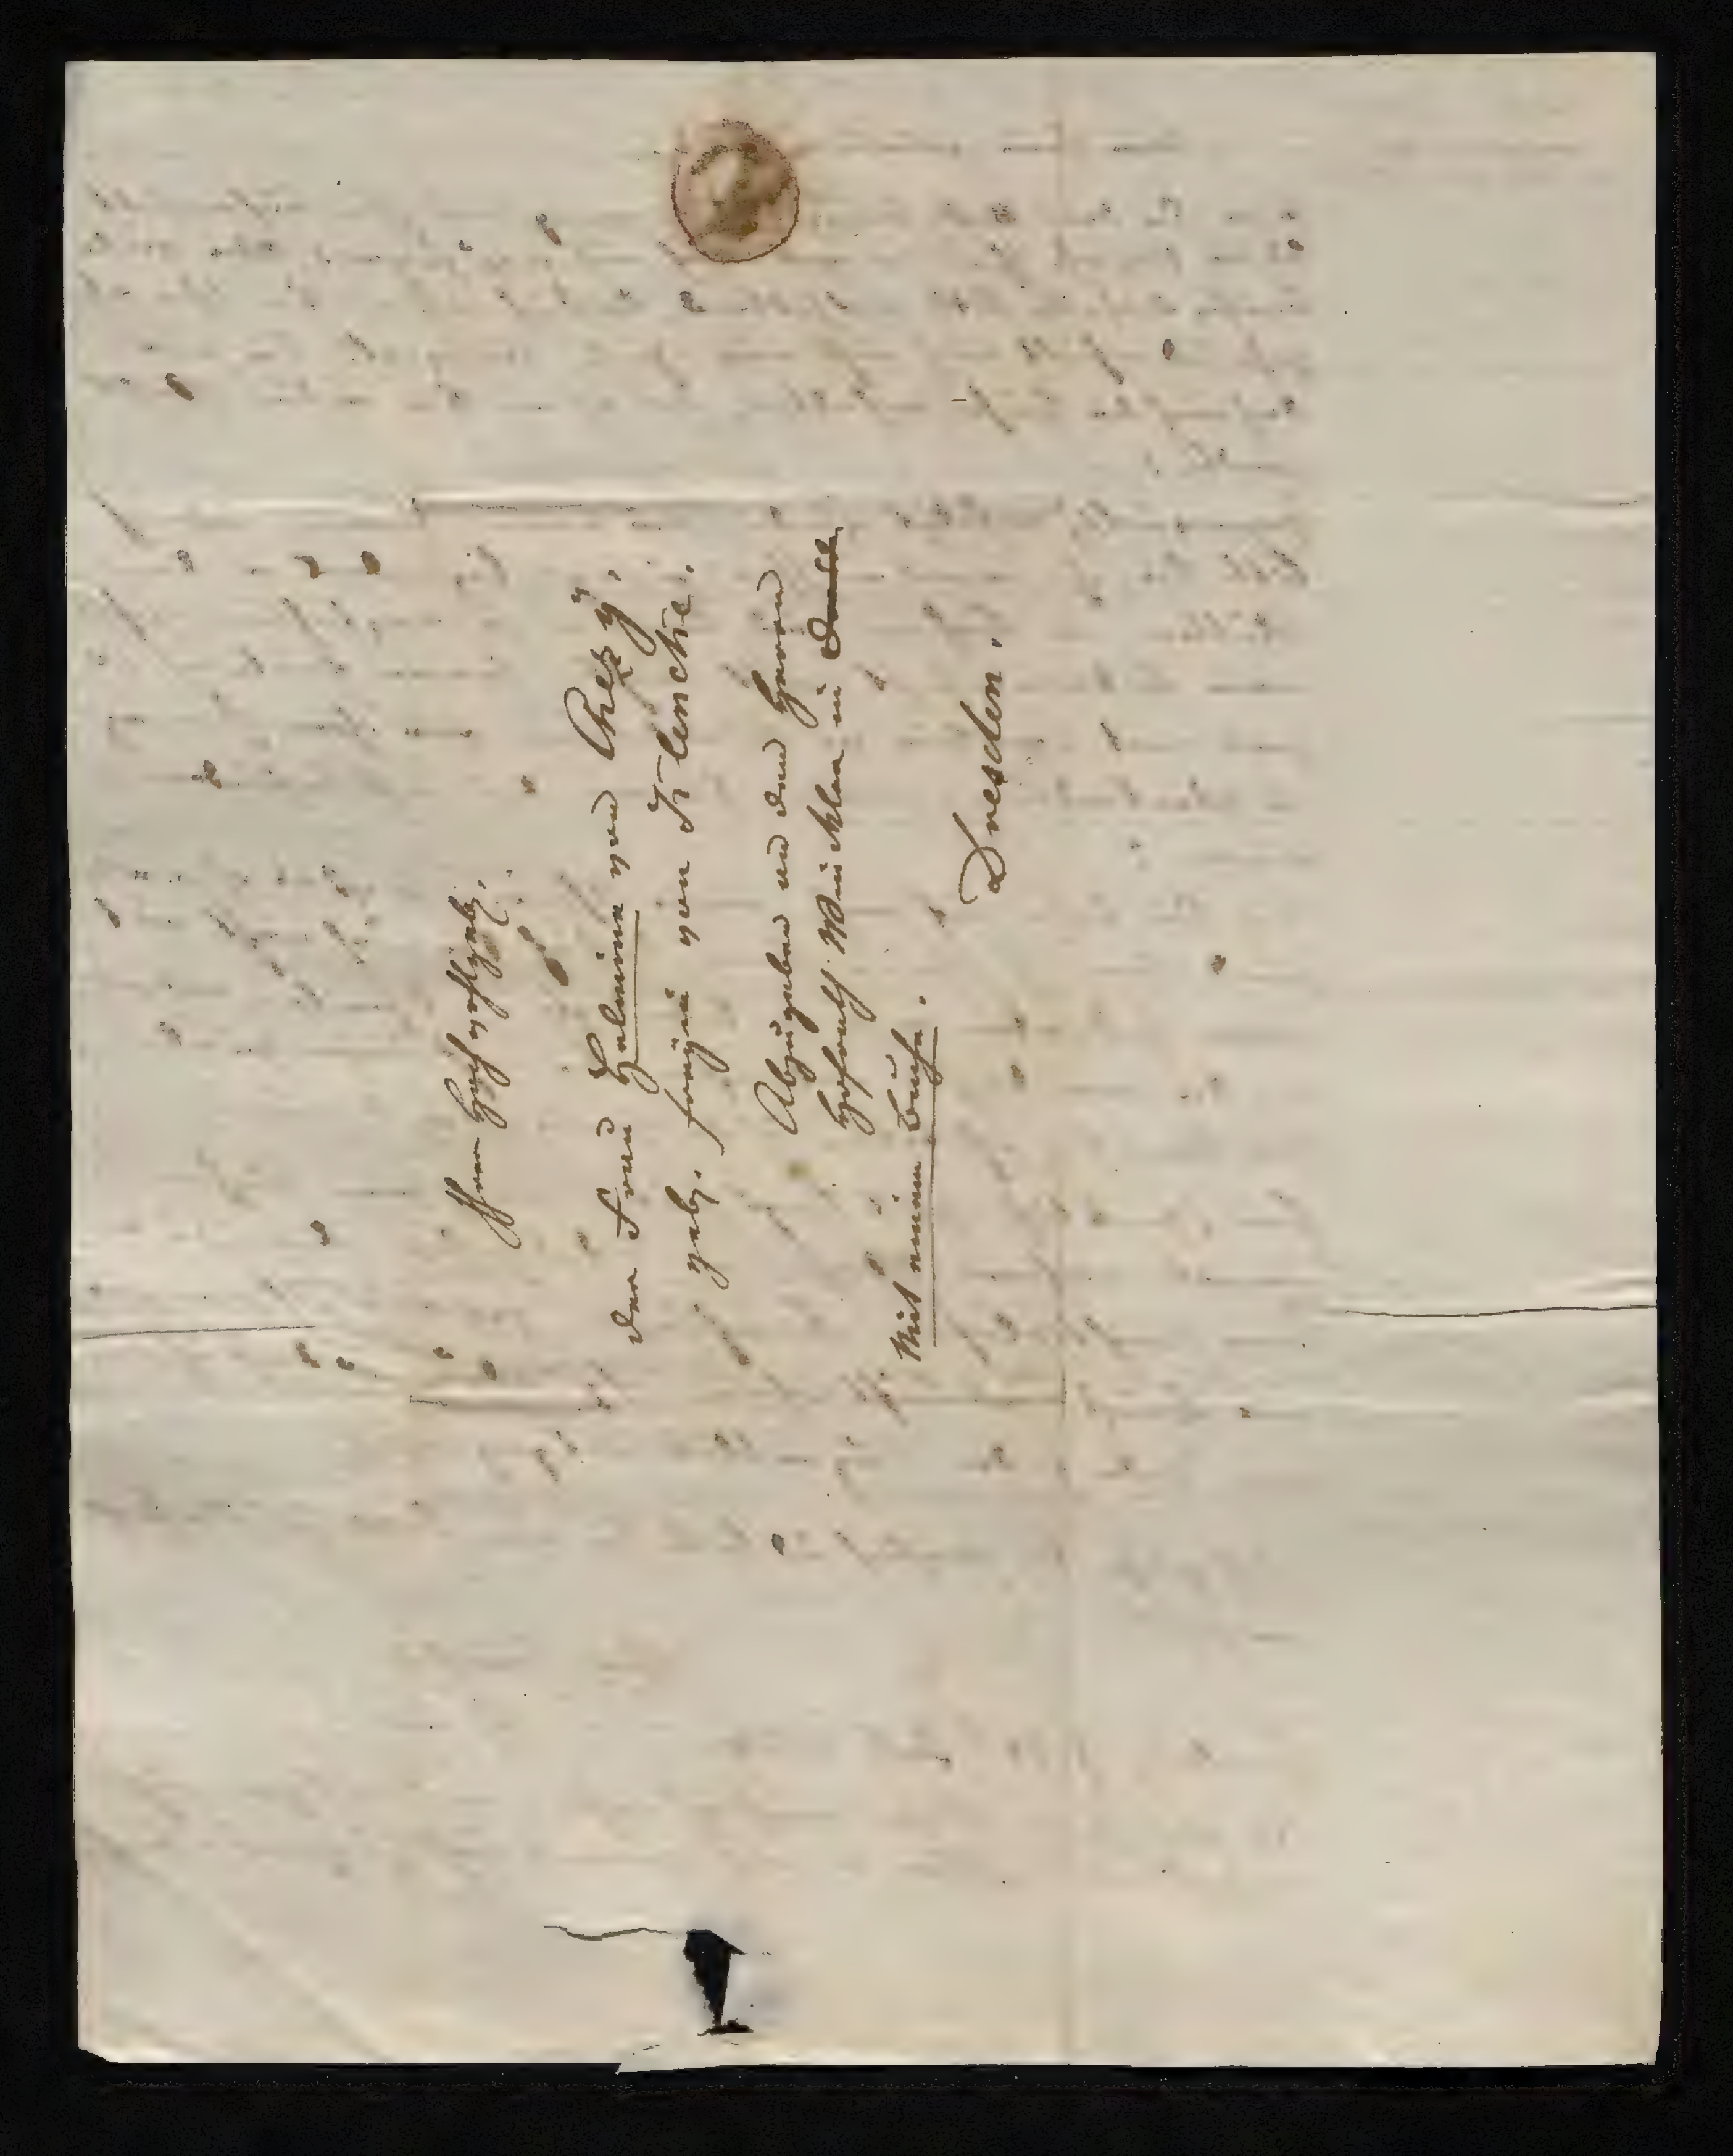 Ihrer Hochwohlgeb.
der Frau Helmina von Chezÿ,
geb. Freyin von Klencke.
Abzugeben an den Herrn
Hofrath Winckler in
Mit einem Buche.
Dresden.